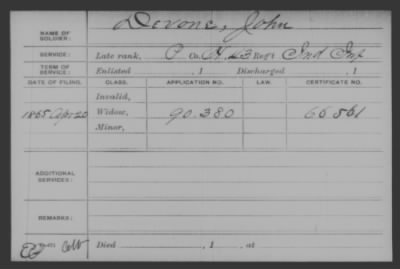 NAME OF SOLDIER: Devone, John
SERVICE: Late rank, P Co. H, 23 Reg't Ind Inf
TERM OF SERVICE: Enlisted , 1 Discharged , 1
DATE OF FILING. CLASS. APPLICATION NO. LAW. CERTIFICATE NO.
Invalid,
1865 Apr 20 Widow, 90.380 66 561
Minor,
ADDITIONAL SERVICES:
REMARKS:
Died , 1 , at